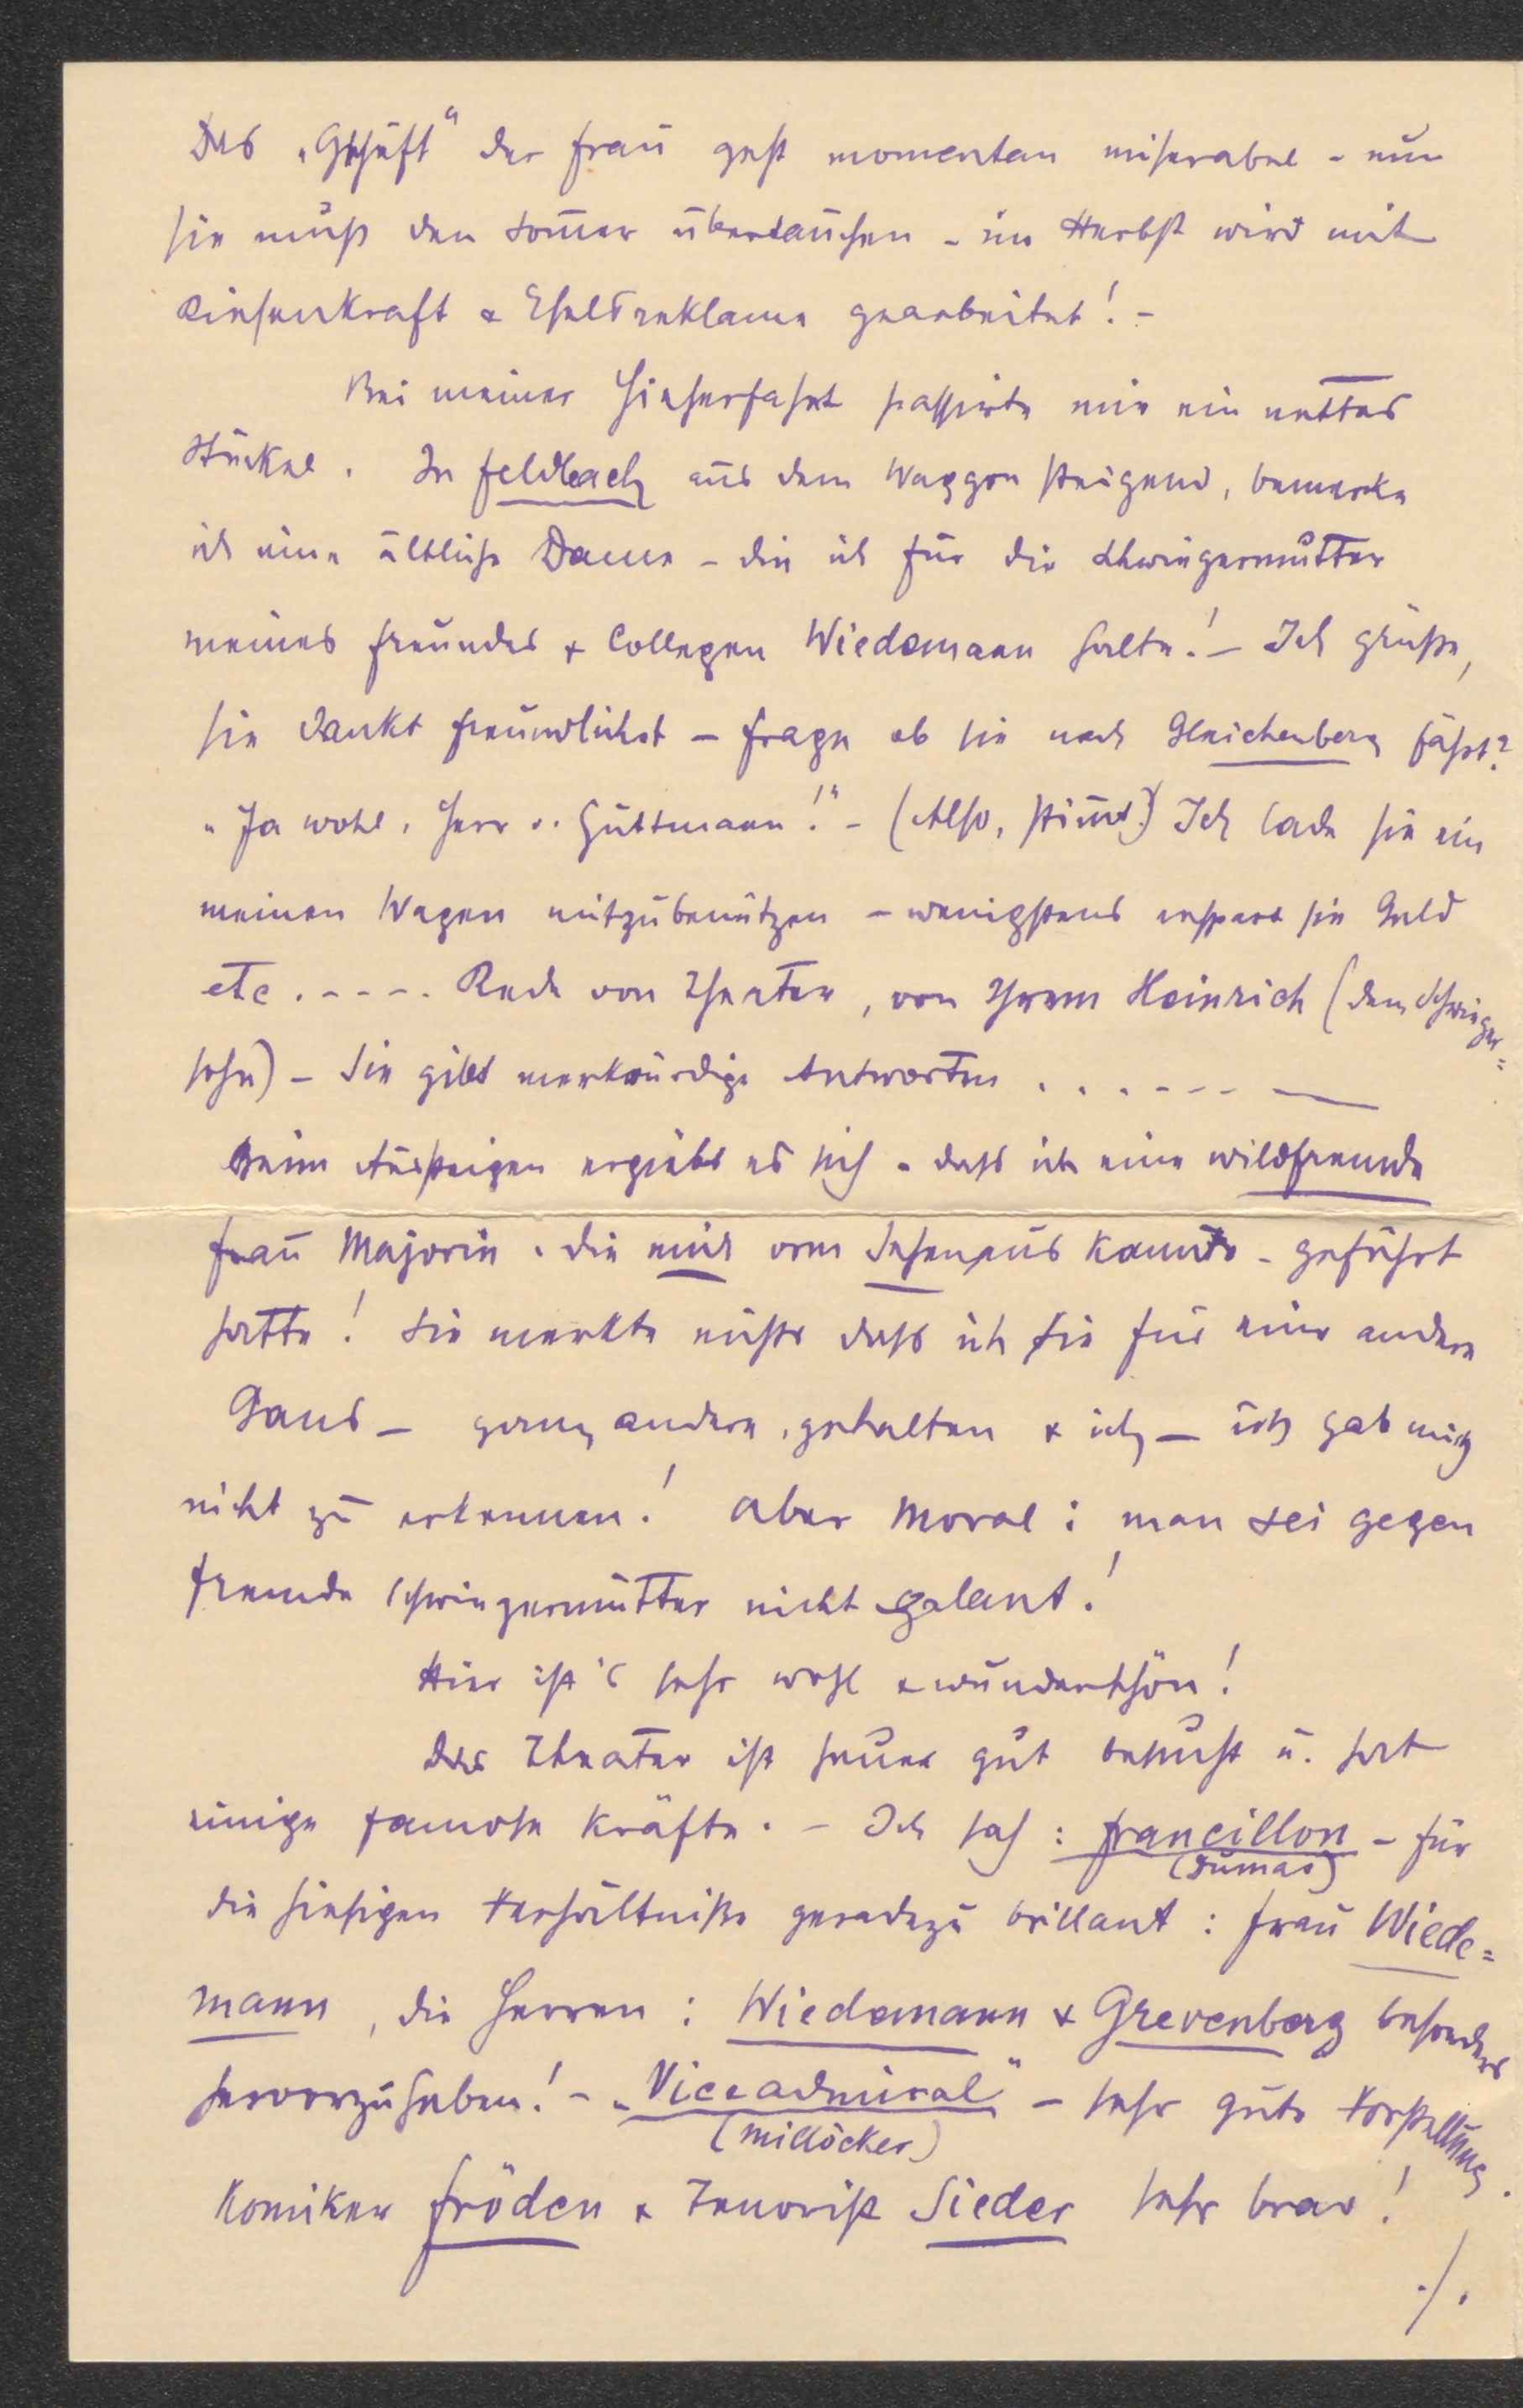 Das „Geschäft" der Frau geht momentan miserabel - nun
sie muß den Somer übertauchen - im Herbst wird mit
Riesenkraft & Eselsreklame gearbeitet! -
Bei meiner Hieherfahrt passirte mir ein nettes
Stückel. In Feldbach aus dem Waggon steigend, bemerke
ich eine ältliche Dame - die ich für die Schwiegermutter
meines Freundes & Collegen Wiedemann halte! - Ich grüße,
sie dankt freundlichst - frage ob sie nach Gleichenberg fährt?
„Ja wohl, Herr v. Güttmann!" - (Also, stimt!) Ich lade sie ein
meinen Wagen mitzubenützen - wenigstens erspart sie Geld
etc. - - - -. Rede von Theater, von Ihrem Heinrich (dem Schwieger=
sohn) - Sie gibt merkwürdige Antworten . . . . - - - —
Beim Aussteigen ergiebt es sich - dass ich eine wildfremde
Frau Majorin, die mich vom Sehen aus kannte - geführt
hatte! Sie merkte nichts dass ich sie für eine andere
Gans - ganz andere, gehalten & ich - ich gab mich
nicht zu erkennen! Aber Moral: man sei gegen
fremde Schwiegermütter nicht galant!
Hier ist's sehr wohl & wunderschön!
Das Theater ist heuer gut besucht u. hat
einige famose Kräfte. - Ich sah: Francillon - für
(Dumas)
die hiesigen Verhältniße geradezu brillant: Frau Wiede=
mann, die Herren: Wiedemann & Grevenberg besonders
hervorzuheben! - „Viceadmiral" - sehr gute Vorstellung.
(Millöcker)
Komiker Fröden & Tenorist Sieder sehr brav!
./.